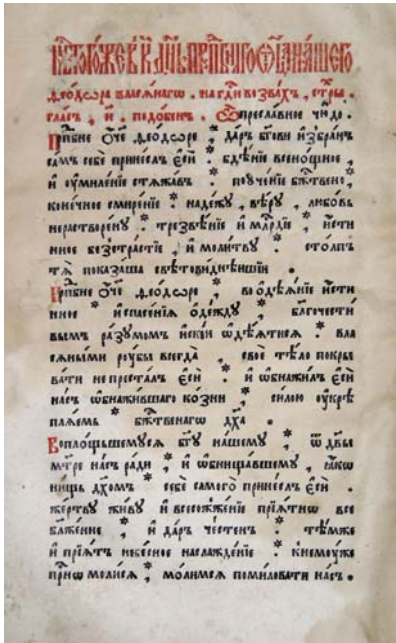 тогѡ́же въ к҃ дн҃ь прпⷣбнагѡ ѻ҆ц҃а̀ на́шегѡ
ѳео́дѡра власѧ́нагѡ . на гд҇и возва́хъ , стры̑ .
гла́съ , и҃ . подо́бенъ . Ѽ пресла́вное чю́до .
Прпⷣбне ѻ҆́ч҃е ѳео́дѡре * да́ръ бг҃ови и҆збра́нъ
са́мъ себѐ прине́слъ є҆сѝ . бдѣ́нїе всено́щное ,
и҆ ѹ҆миле́нїе стѧжа́въ . поуче́нїе бж҇твено ,
коне́чное смире́нїе * наде́жу , вѣ́ру , любо́вь
нерастворе́ну * трезвѣ́нїе и҆ млⷭ҇рдїе * и҆́сти
нное безстра́стїе , и҆ моли́тву * сто́лпъ
тѧ̀ показа́ша свѣтови́днѣйшїи .
Прпⷣбне ѻ҆́ч҃е ѳео́дѡре * во ѻ҆дѣѧ́нїе и҆́сти
нное * и҆ спасе́нїѧ ѻ҆де́жду * благочести́
вымъ ра́зумомъ и҆скѝ ѡ҆дѣ́ѧтисѧ * вла
сѧ́ными роу́бы всегда̀ , своѐ тѣ́ло покры
ва́ти не преста́лъ є҆сѝ * и҆ ѡ҆бнажи́лъ є҆сѝ
на́съ ѡ҆бнажи́вшаго ко́зни * си́лою ѹ҆крѣ
плѧ́емь * бж҇твенагѡ дх҃а .
Воплощьшемуся бг҃у на́шему * ѿ дв҃ы
мт҃ре на́съ ра́ди * и҆ ѡ҆бнища́вшему , ꙗ҆́кѡ
ни́щь дх҃омъ * себѐ самого̀ прине́слъ є҆сѝ .
же́ртву жи́ву и҆ всесожже́нїе прїѧ́тнѡ все
блаже́нне * и҆ да́ръ че́стенъ * тѣ́мже
и҆ прїѧ́тъ небе́сное наслажде́нїе * к нему́же
при́снѡ моли́сѧ * мо́лимсѧ поми́ловати на́съ .